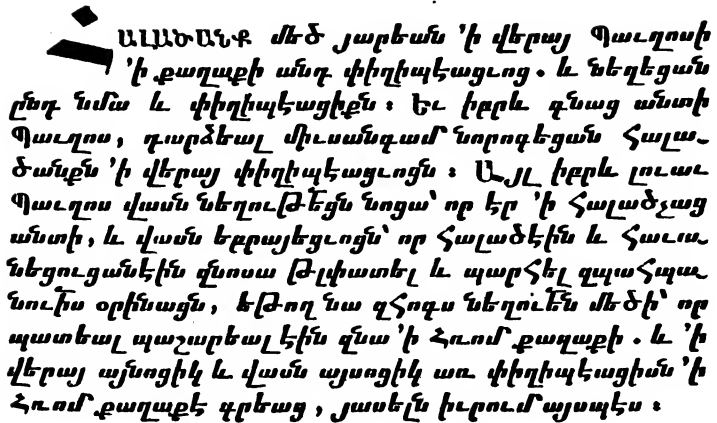 ՀԱԼԱԾԱՆՔ մեծ յարեան 'ի վերայ Պաւղոսի
'ի քաղաքի անդ փիղիպէացւոց. և նեղեցան
ընդ նմա և փիղիպէացիքն : Եւ իբրև գնաց անտի
Պաւղոս, դարձեալ միւսանգամ նորոգեցան հալա֊
ծանքն 'ի վերայ փիղիպէացւոցն : Այլ իբրև լուաւ
Պաւղոս վասն նեղութեցն նոցա՝ որ էր 'ի հալածչաց
անտի, և վասն եբրայեցւոցն՝ որ հալածէին և հաւա֊
նեցուցանէին զնոսա թլփատել և պարհել զպահպա֊
նուիս օրինացն, եթող նա զհոգս նեղուեն մեծի՝ որ
պատեալ պաշարեալ էին զնա 'ի Հռոմ քաղաքի . և 'ի
վերայ այնոցիկ և վասն այսոցիկ առ փիղիպէացիսն 'ի
Հռոմ քաղաքէ գրեաց , յասելն իւրում այսպէս :